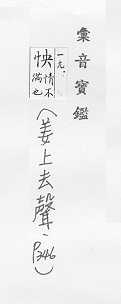 彙音寶鑑
一九.
怏 情不滿也
(姜上去聲、P346)